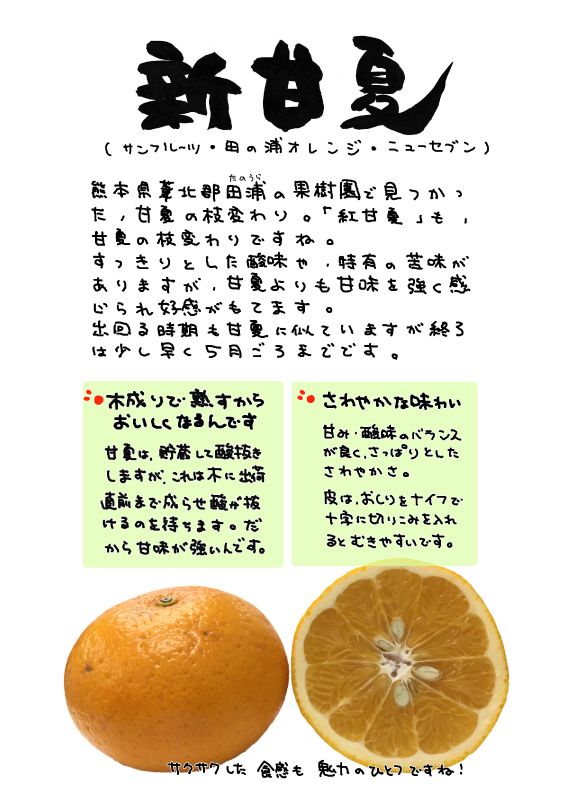 新甘夏
(サンフルーツ・田の浦オレンジ・ニューセブン)
たのうら
熊本県葦北郡田浦の果樹園で見つかっ
た、甘夏の枝変わり。「紅甘夏」も、
甘夏の枝変わりですね。
すっきりとした酸味や、特有の苦味が
ありますが、甘夏よりも甘味を強く感
じられ好感がもてます。
出回る時期も甘夏に似ていますが終ろ
は少し早く5月ごろまでです。
木成りで熟すから
おいしくなるんです
甘夏は、貯蔵して酸抜き
しますが、これは木に出荷
直前まで成らせ酸が抜
けるのを待ちます。だ
から甘味が強いんです。
さわやかな味わい
甘み・酸味のバランス
が良く、さっぱりとした
さわやかさ。
皮は、おしりをナイフで
十字に切りこみを入れ
るとむきやすいです。
サクサクした 食感も 魅力のひとつですね!